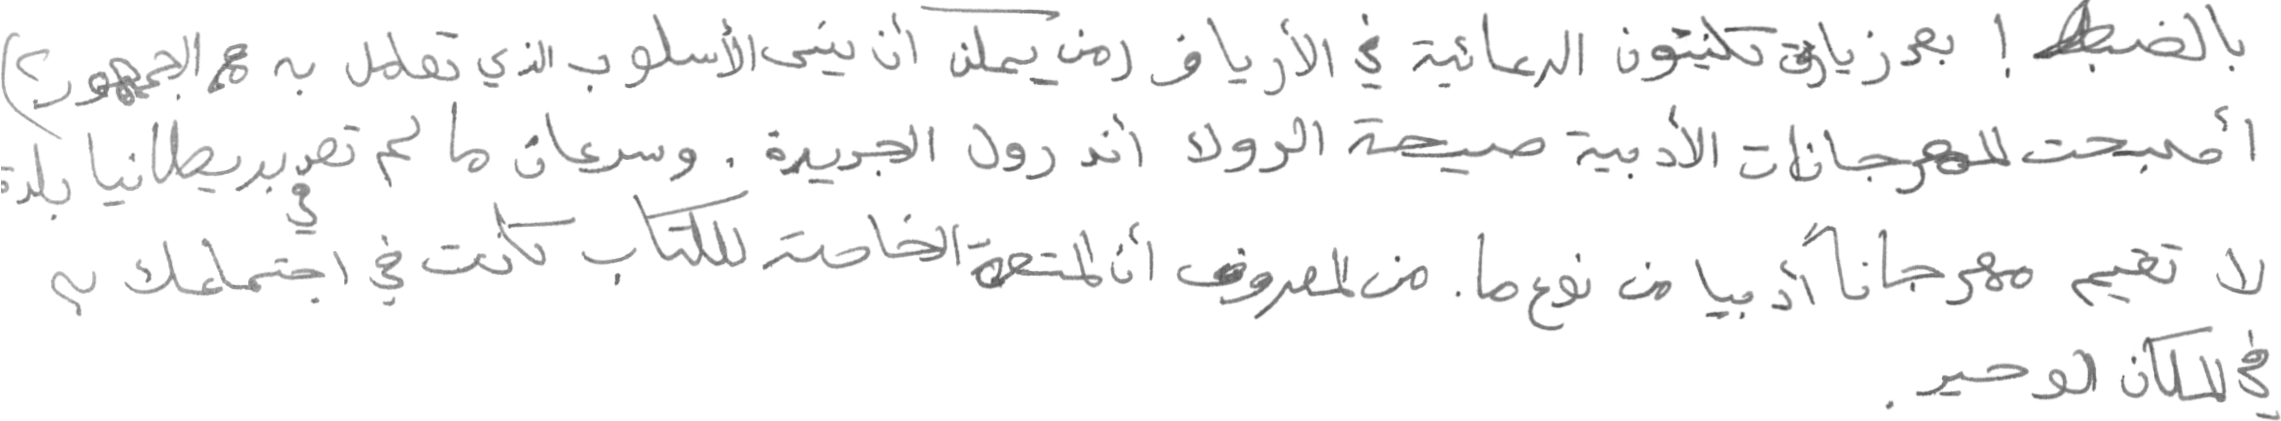 بالضبط! بعد زيارة كلنيتون الدعائية في الأرياف (من يمكن أن ينسى الأسلوب الذي تعامل به مع الجمهور؟)
أصبحت المهرجانات الأدبية صيحة الرولا أند رول الجديدة. وسرعان ما لم تعد في بريطانيا بلدة
لا تقيم مهرجاناً أدبيا من نوع ما. من المعروف أن المتعة الخاصة للكتاب كانت في اجتماعك به
في المكان الوحيد.